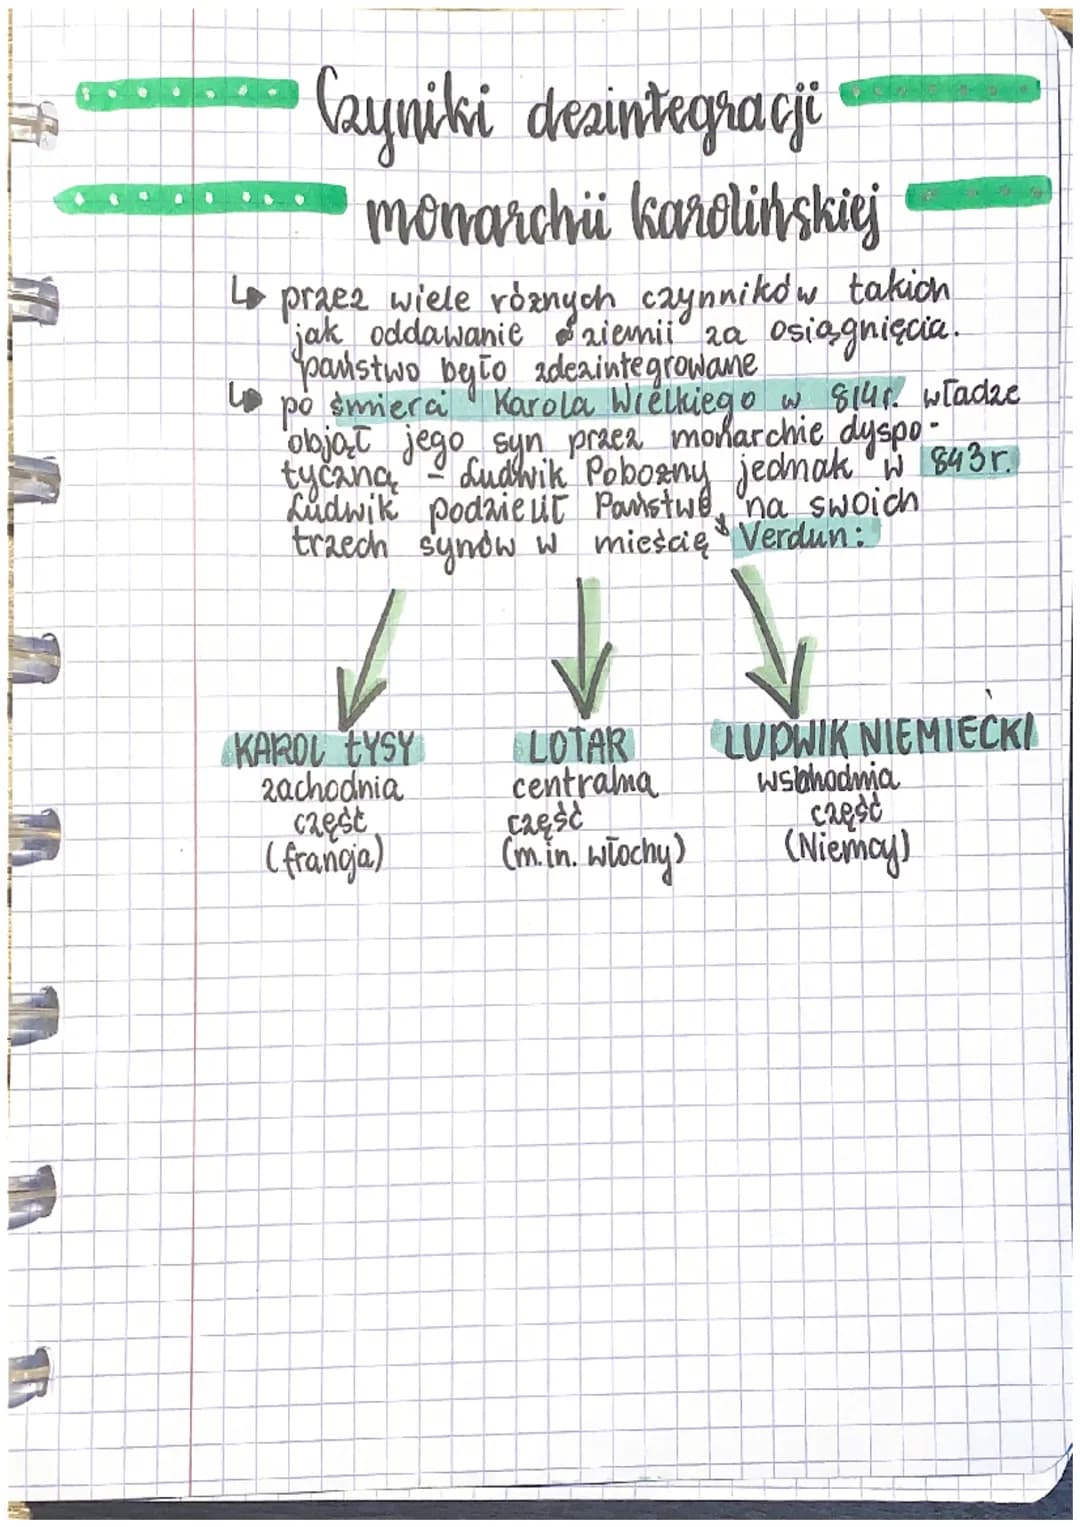 Czyniki dezintegracji
monarchii karolińskiej
przez wiele różnych czynników takich
jak oddawanie ziemii za osiągnięcia.
państwo było zdezintegrowane
po śmierci Karola Wielkiego w 814r. władze
objął jego syn przez monarchie dyspo-
tyczną - Ludwik Pobożny jednak w 843r.
Ludwik podzielił Państwo, na swoich
trzech synów w mieścię Verdun:
KAROL ŁYSY LOTAR LUDWIK NIEMIECKI
zachodnia centralna wschodnia
część część część
(francja) (m.in. włochy) (Niemcy)